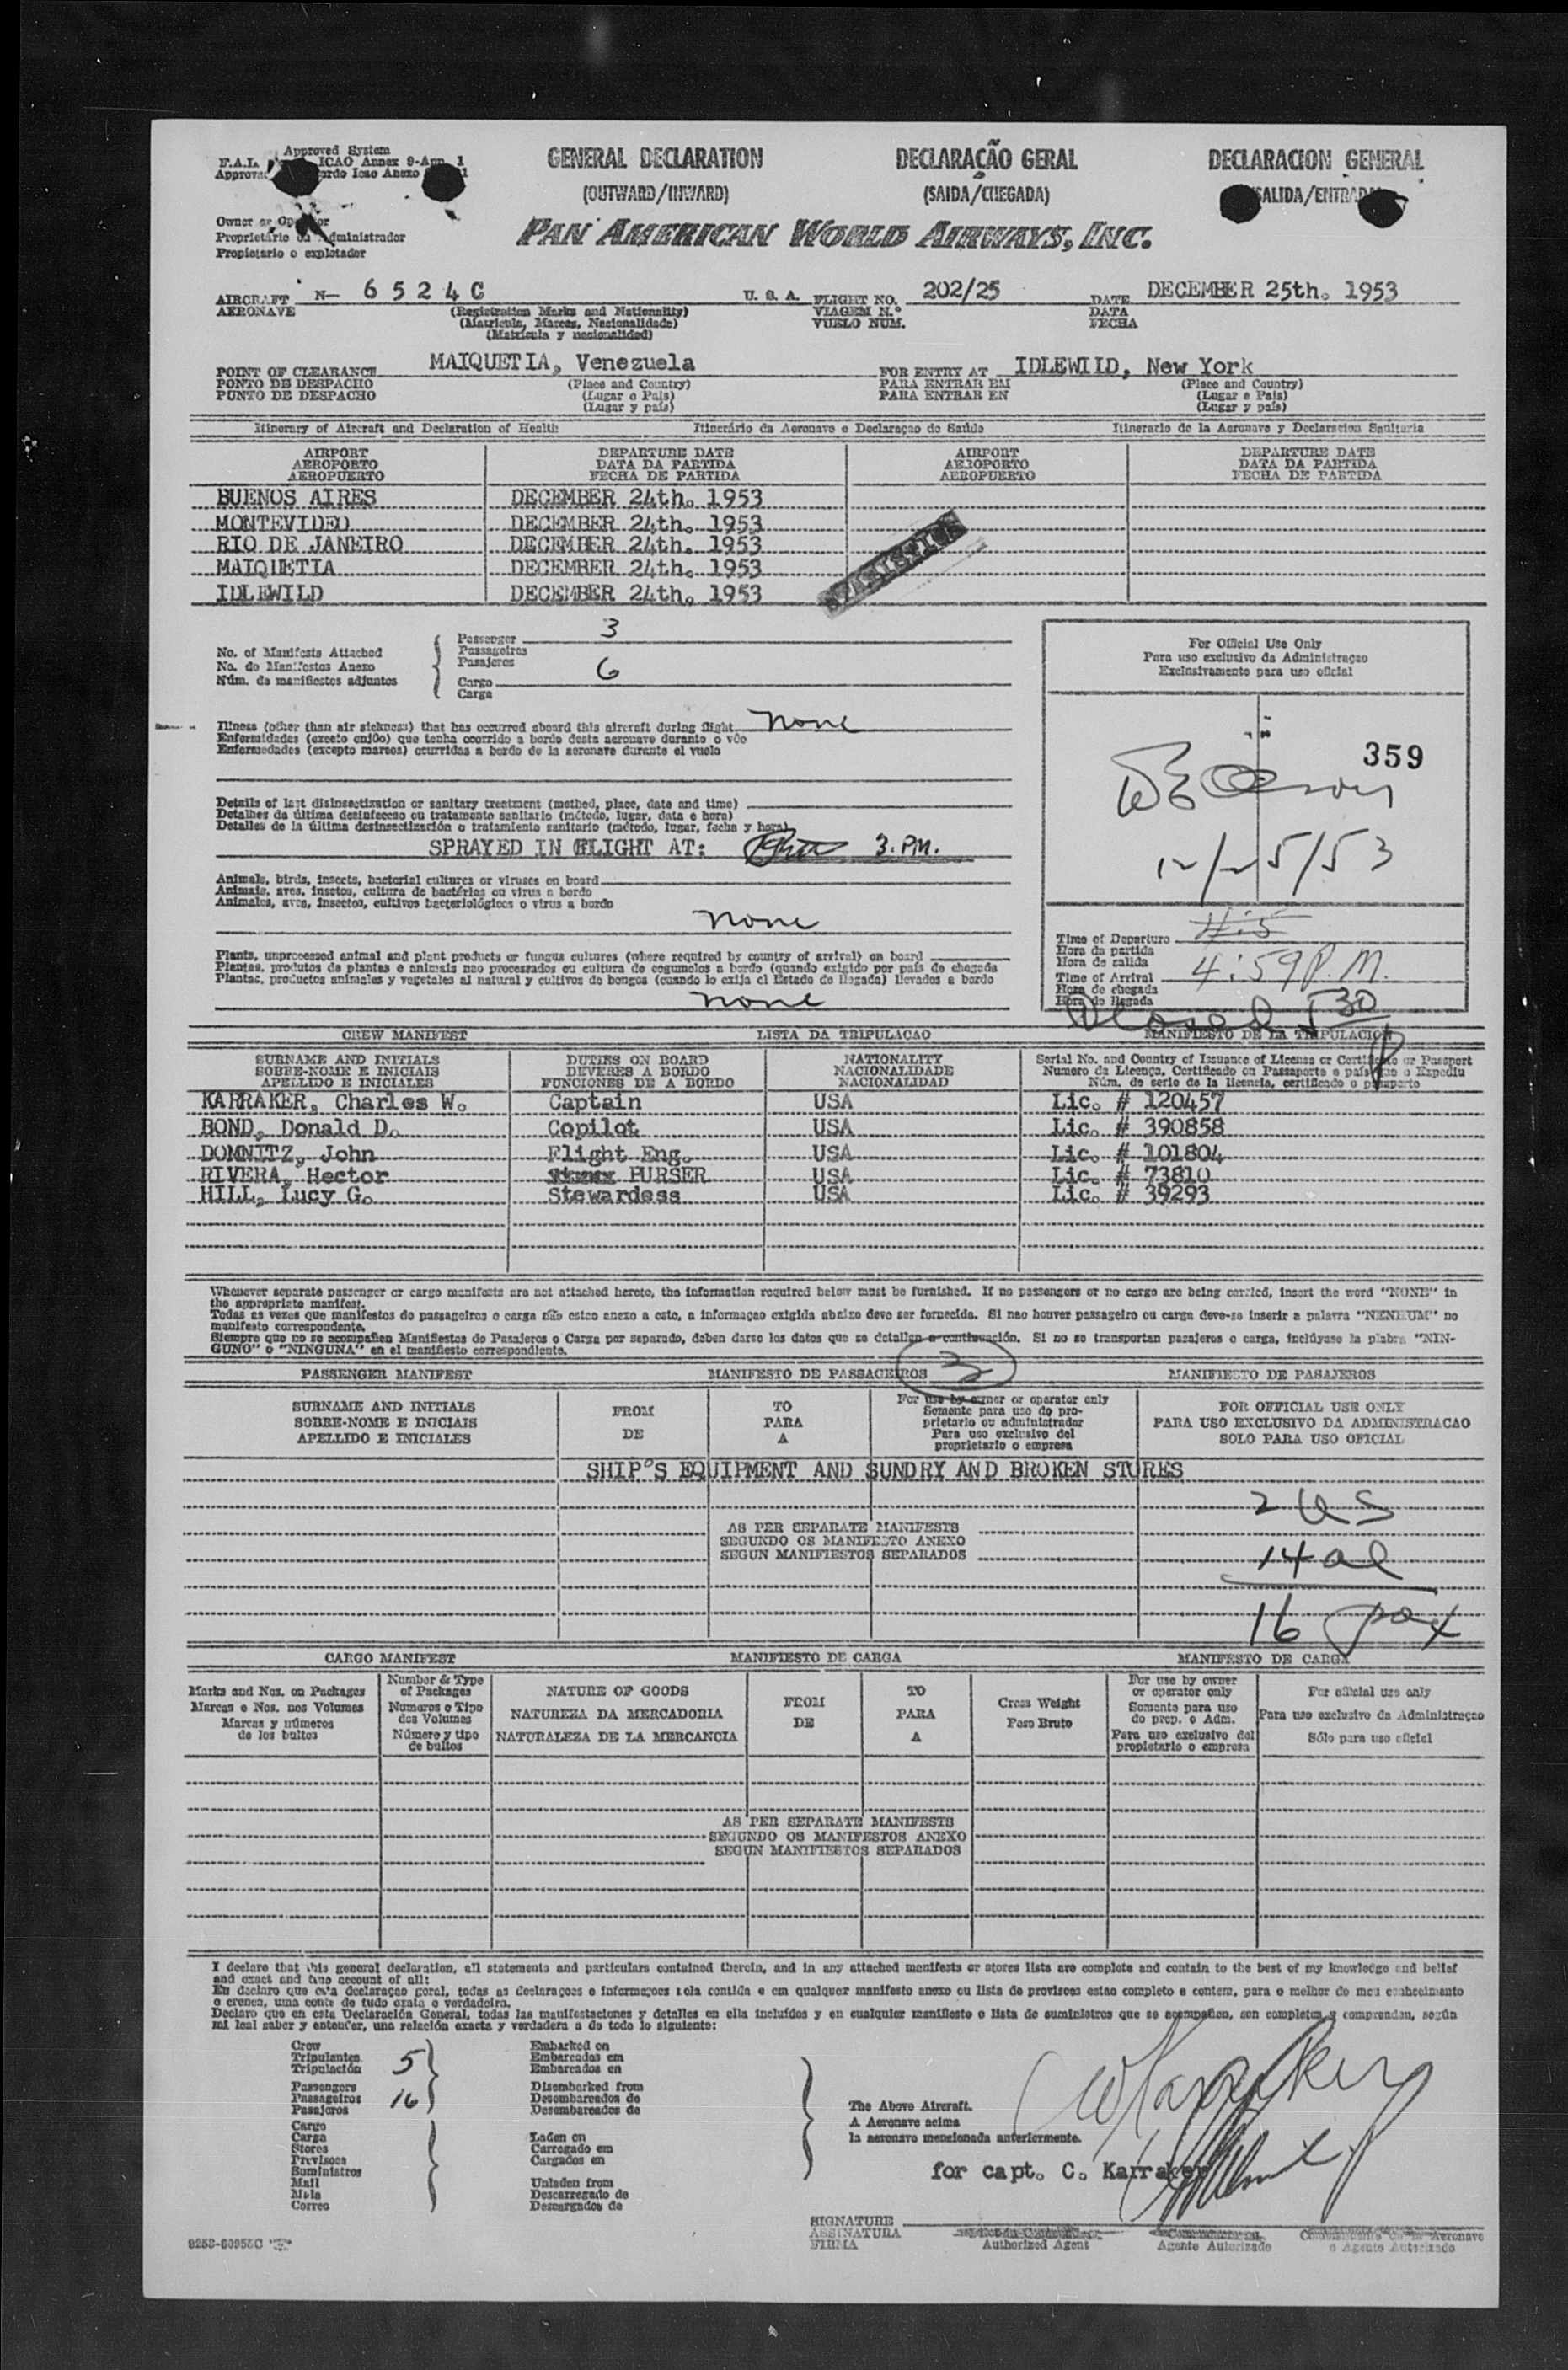 Approved System
F.A.L. ICAO Annex 9-App. 1
ordo Icao Anexo 1
GENERAL DECLARATION DECLARAÇÃO GERAL DECLARACION GENERAL
(OUTWARD/INWARD) (SAIDA/CHEGADA) SALIDA/ENTRADA
Owner or Operator
Proprietário ou Administrador
Propietario o explotador
PAN AMERICAN WORLD AIRWAYS, INC.
AIRCRAFT N- 6 5 2 4 C U. S. A. FLIGHT NO. 202/25 DATE DECEMBER 25th. 1953
AERONAVE (Registration Marks and Nationality) VIAGEM N.º DATA
(Matricula, Marcas, Nacionalidade) VUELO NUM. FECHA
(Matricula y nacionalidad)
POINT OF CLEARANCE MAIQUETIA, Venezuela FOR ENTRY AT IDLEWILD, New York
PONTO DE DESPACHO (Place and Country) PARA ENTRAR EM (Place and Country)
PUNTO DE DESPACHO (Lugar e País) PARA ENTRAR EN (Lugar e País)
(Lugar y país) (Lugar y país)
Itinerary of Aircraft and Declaration of Health Itinerário da Aeronave e Declaraçao de Saúde Itinerario de la Aeronave y Declaracion Sanitaria
AIRPORT DEPARTURE DATE AIRPORT DEPARTURE DATE
AEROPORTO DATA DA PARTIDA AEROPORTO DATA DA PARTIDA
AEROPUERTO FECHA DE PARTIDA AEROPUERTO FECHA DE PARTIDA
BUENOS AIRES DECEMBER 24th. 1953
MONTEVIDEO DECEMBER 24th. 1953
RIO DE JANEIRO DECEMBER 24th. 1953
MAIQUETIA DECEMBER 24th. 1953
IDLEWILD DECEMBER 24th. 1953
No. of Manifests Attached
No. de Manifestos Anexo
Núm. de manifiestos adjuntos
Passenger 3
Passageiros
Pasajeros
Cargo 6
Carga
For Official Use Only
Para uso exclusivo da Administraçao
Exclusivamente para uso oficial
359
12/25/53
Illness (other than air sickness) that has occurred aboard this aircraft during flight none
Enfermidades (exceto enjôo) que tenha ocorrido a bordo desta aeronave durante o vôo
Enfermedades (excepto mareos) ocurridas a bordo de la aeronave durante el vuelo
Details of last disinsectization or sanitary treatment (method, place, date and time)
Detalhes da última desinfeccao ou tratamento sanitario (método, lugar, data e hora)
Detalles de la última desinsectización o tratamiento sanitario (método, lugar, fecha y hora)
SPRAYED IN FLIGHT AT: 3. P.M.
Animals, birds, insects, bacterial cultures or viruses on board
Animais, aves, insetos, cultura de bactérias ou virus a bordo
Animales, aves, insectos, cultivos bacteriológicos o virus a bordo
none
Plants, unprocessed animal and plant products or fungus cultures (where required by country of arrival) on board
Plantas, produtos de plantas e animais nao processados ou cultura de cogumelos a bordo (quando exigido por país de chegada
Plantas, productos animales y vegetales al natural y cultivos de hongos (cuando lo exija el Estado de llegada) llevados a bordo
none
Time of Departure 4:5
Hora da partida
Hora de salida
Time of Arrival 4:59 P.M.
Hora de chegada
Hora de llegada
Closed 5 30
CREW MANIFEST LISTA DA TRIPULACAO MANIFIESTO DE LA TRIPULACION
SURNAME AND INITIALS DUTIES ON BOARD NATIONALITY Serial No. and Country of Issuance of License or Certificate or Passport
SOBRE-NOME E INICIAIS DEVERES A BORDO NACIONALIDADE Numero da Licença, Certificado ou Passaporte e país que o Expediu
APELLIDO E INICIALES FUNCIONES DE A BORDO NACIONALIDAD Núm. de serie de la licencia, certificado o pasaporte
KARRAKER, Charles W. Captain USA Lic. # 120457
BOND, Donald D. Copilot USA Lic. # 390858
DOMNITZ, John Flight Eng. USA Lic. # 101804
RIVERA, Hector PURSER USA Lic. # 73810
HILL, Lucy G. Stewardess USA Lic. # 39293
Whenever separate passenger or cargo manifests are not attached hereto, the information required below must be furnished. If no passengers or no cargo are being carried, insert the word "NONE" in
the appropriate manifest.
Todas as vezes que manifestos de passageiros e carga não estao anexo a esto, a informaçao exigida abaixo deve ser fornecida. Si nao houver passageiro ou carga deve-se inserir a palavra "NENHUM" no
manifesto correspondente.
Siempre que no se acompañen Manifiestos de Pasajeros o Carga por separado, deben darse los datos que se detallan a continuación. Si no se transportan pasajeros o carga, inclúyase la plabra "NIN-
GUNO" o "NINGUNA" en el manifiesto correspondiente.
3
PASSENGER MANIFEST MANIFESTO DE PASSAGEIROS MANIFIESTO DE PASAJEROS
SURNAME AND INITIALS FROM TO For use by owner or operator only FOR OFFICIAL USE ONLY
SOBRE-NOME E INICIAIS DE PARA Somente para uso do pro- PARA USO EXCLUSIVO DA ADMINISTRACAO
APELLIDO E INICIALES A prietario ou administrador SOLO PARA USO OFICIAL
Para uso exclusivo del
proprietario o empresa
SHIP'S EQUIPMENT AND SUNDRY AND BROKEN STORES
2 US
AS PER SEPARATE MANIFESTS
SEGUNDO OS MANIFESTO ANEXO
SEGUN MANIFIESTOS SEPARADOS
14 al
16 pax
CARGO MANIFEST MANIFIESTO DE CARGA MANIFESTO DE CARGA
Marks and Nos. on Packages Number & Type of Packages NATURE OF GOODS FROM TO Gross Weight For use by owner or operator only For official use only
Marcas e Nos. nos Volumes Numeros e Tipo dos Volumes NATUREZA DA MERCADORIA DE PARA Peso Bruto Somente para uso do prop. o Adm. Para uso exclusivo da Administraçao
Marcas y números de los bultos Número y tipo de bultos NATURALEZA DE LA MERCANCIA A Para uso exclusivo del propietario o empresa Sólo para uso oficial
AS PER SEPARATE MANIFESTS
SEGUNDO OS MANIFESTOS ANEXO
SEGUN MANIFIESTOS SEPARADOS
I declare that this general declaration, all statements and particulars contained therein, and in any attached manifests or stores lists are complete and contain to the best of my knowledge and belief
and exact and true account of all:
Eu declaro que esta declaraçao geral, todas as declaraçoes e informaçoes nela contida e contem, e em qualquer manifesto anexo ou lista de provisoes estao completo e contem, para o melhor do meu conhecimento
e crenen, uma conte de tudo exata e verdadeira.
Declaro que en esta Declaración General, todas las manifestaciones y detalles en ella incluídos y en cualquier manifiesto o lista de suministros que se acompañen, son completos y comprenden, según
mi leal saber y entender, una relación exacta y verdadera a de todo lo siguiente:
Crew
Tripulantes 5
Tripulación
Passengers
Passageiros 16
Pasajeros
Cargo
Carga
Stores
Previsoes
Suministros
Mail
Mala
Correo
Embarked on
Embarcados em
Embarcados en
Disembarked from
Desembarcados de
Desembarcados de
Laden on
Carregado em
Cargados en
Unladen from
Descarregado de
Descargados de
The Above Aircraft.
A Aeronave acima
la aeronave mencionada anteriormente.
CW Karraker
for capt. C. Karraker
SIGNATURE
ASSINATURA
FIRMA
Authorized Agent Agente Autorizado o Agente Autorizado